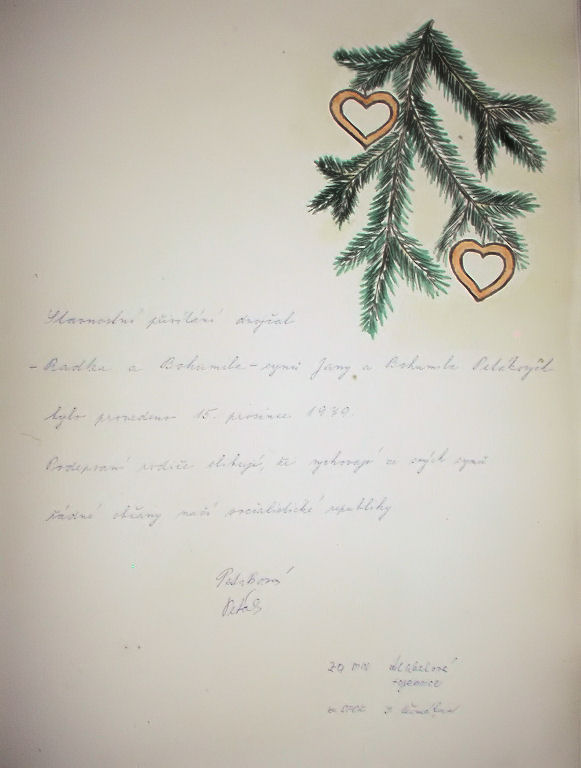 Slavnostní přivítání dvojčat
- Radka a Bohumila - synů Jany a Bohumila Petákových
bylo provedeno 15. prosince 1979.
Podepsaní rodiče slibují, že vychovají ze svých synů
řádné občany naší socialistické republiky
Petáková
Peták
za MNV
tajemnice
za SPOZ